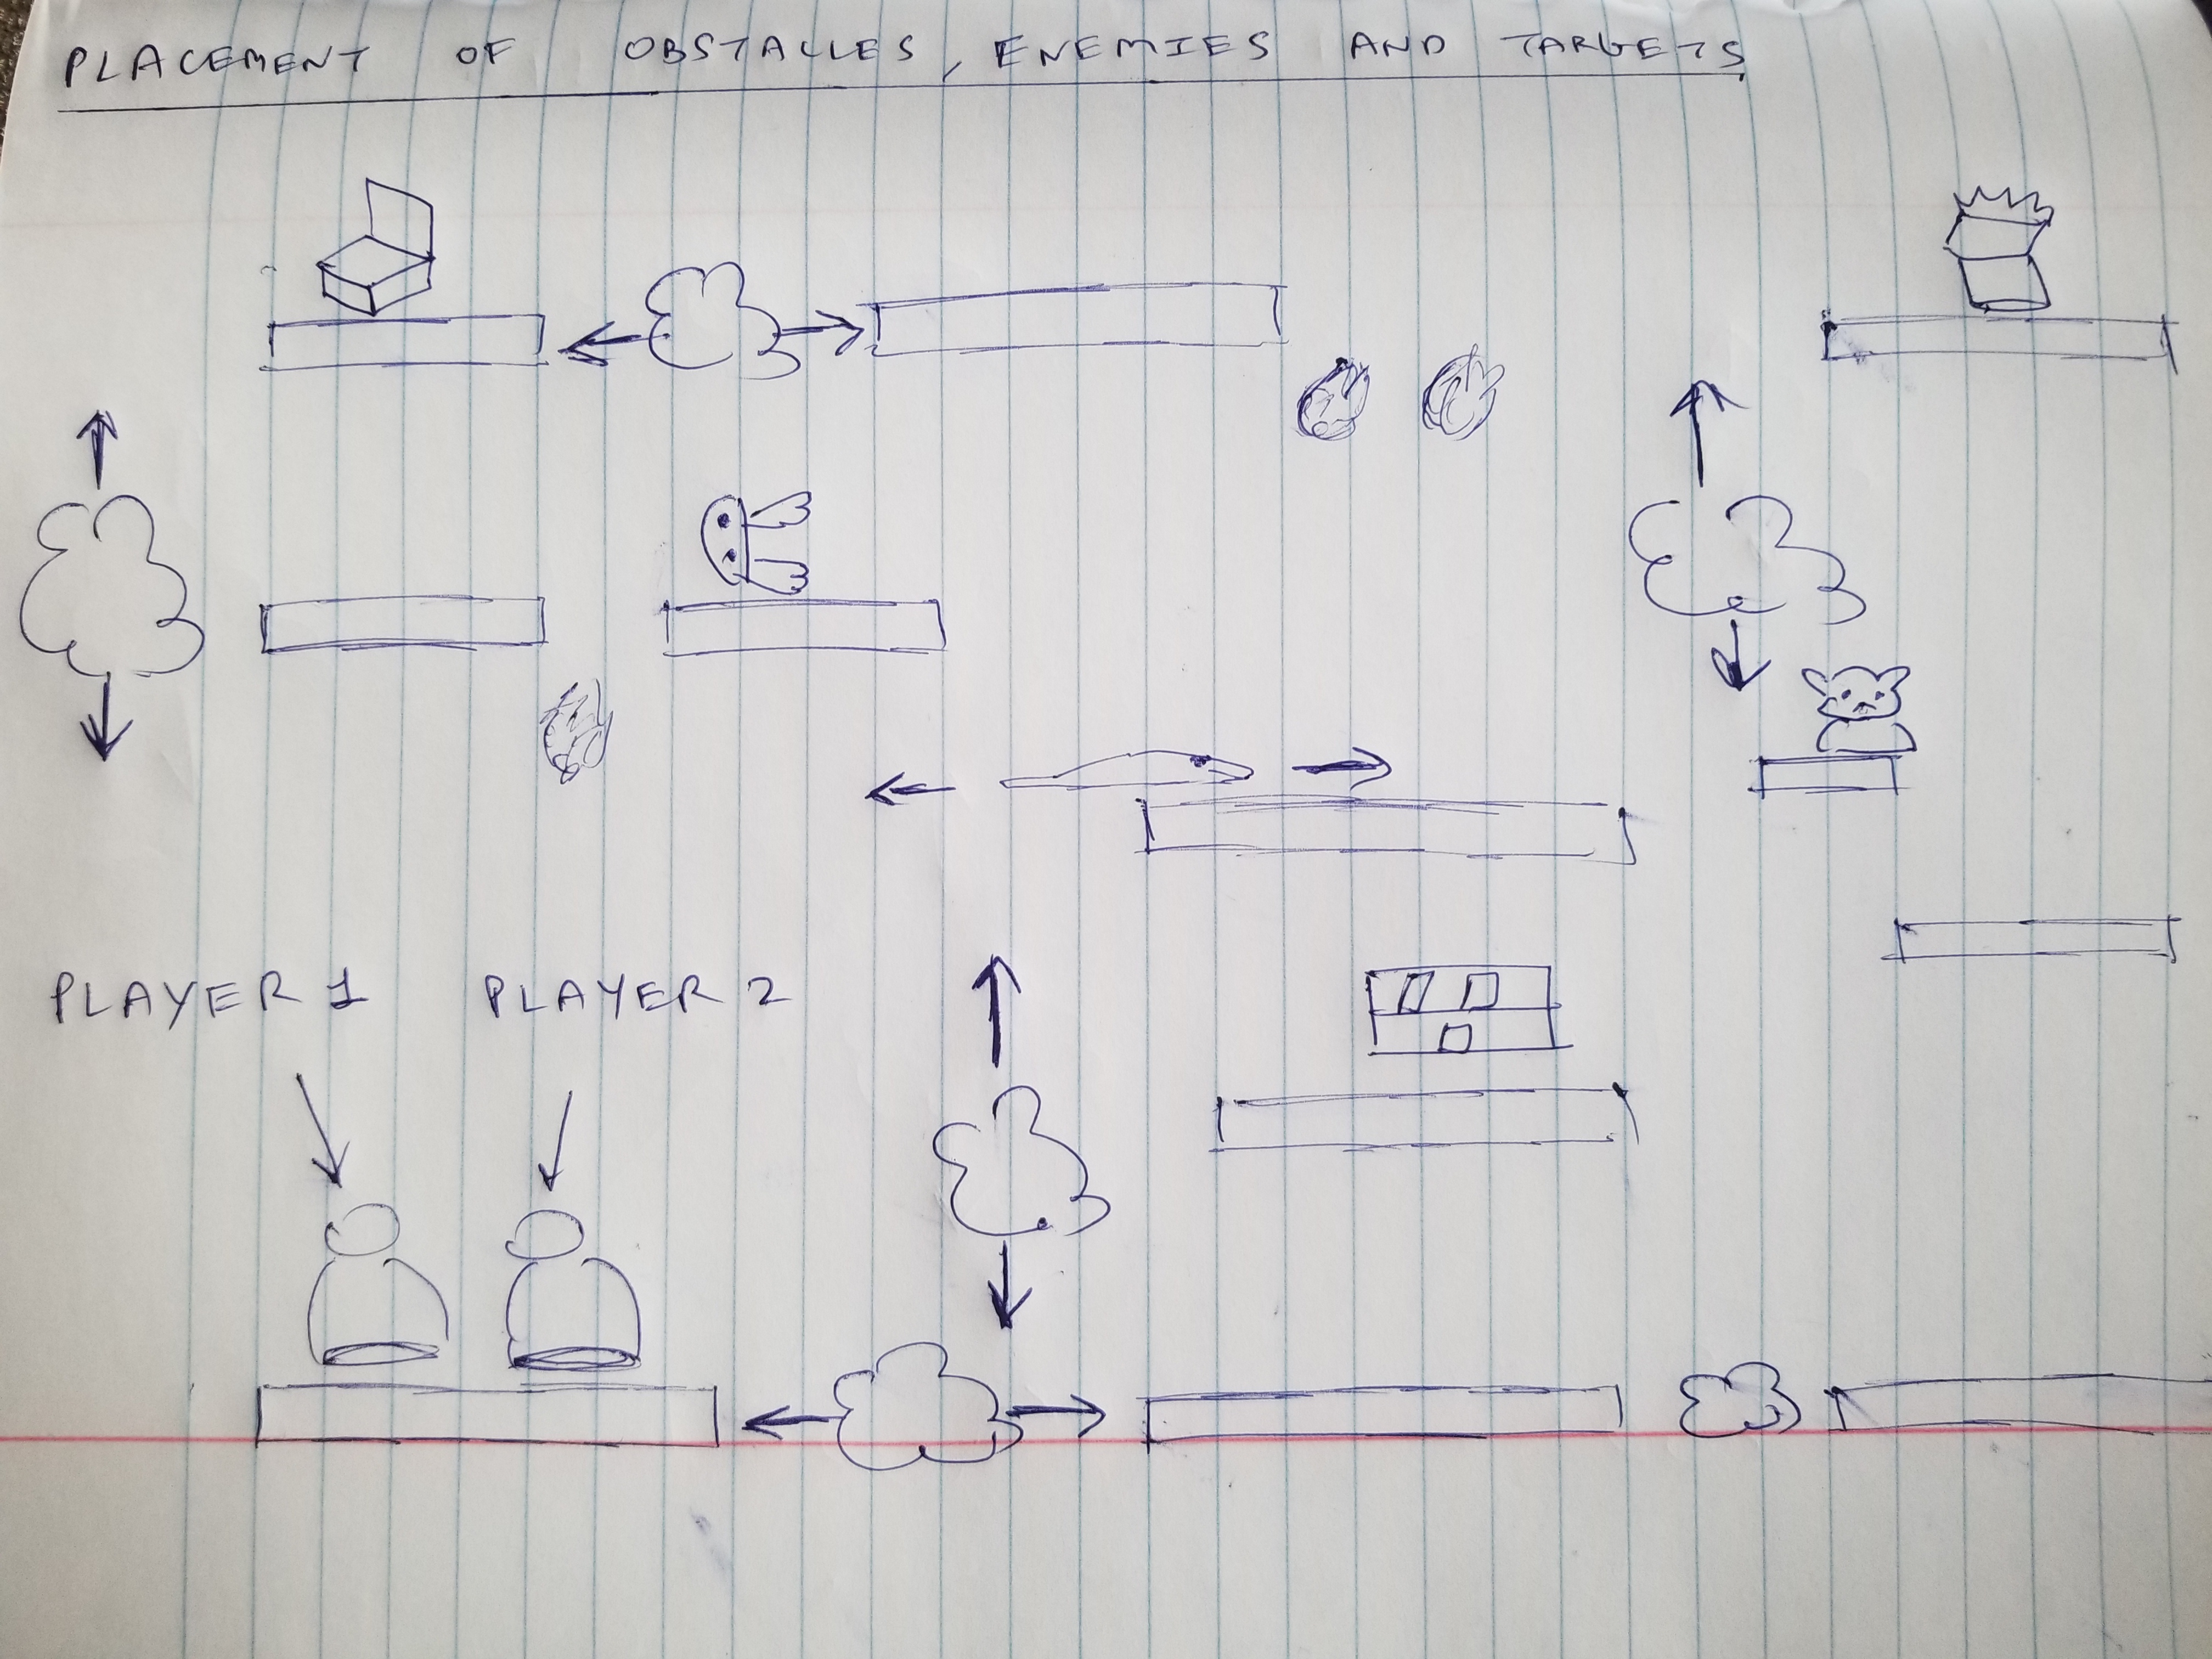 PLACEMENT OF OBSTACLES, ENEMIES AND TARGETS
PLAYER 1
PLAYER 2